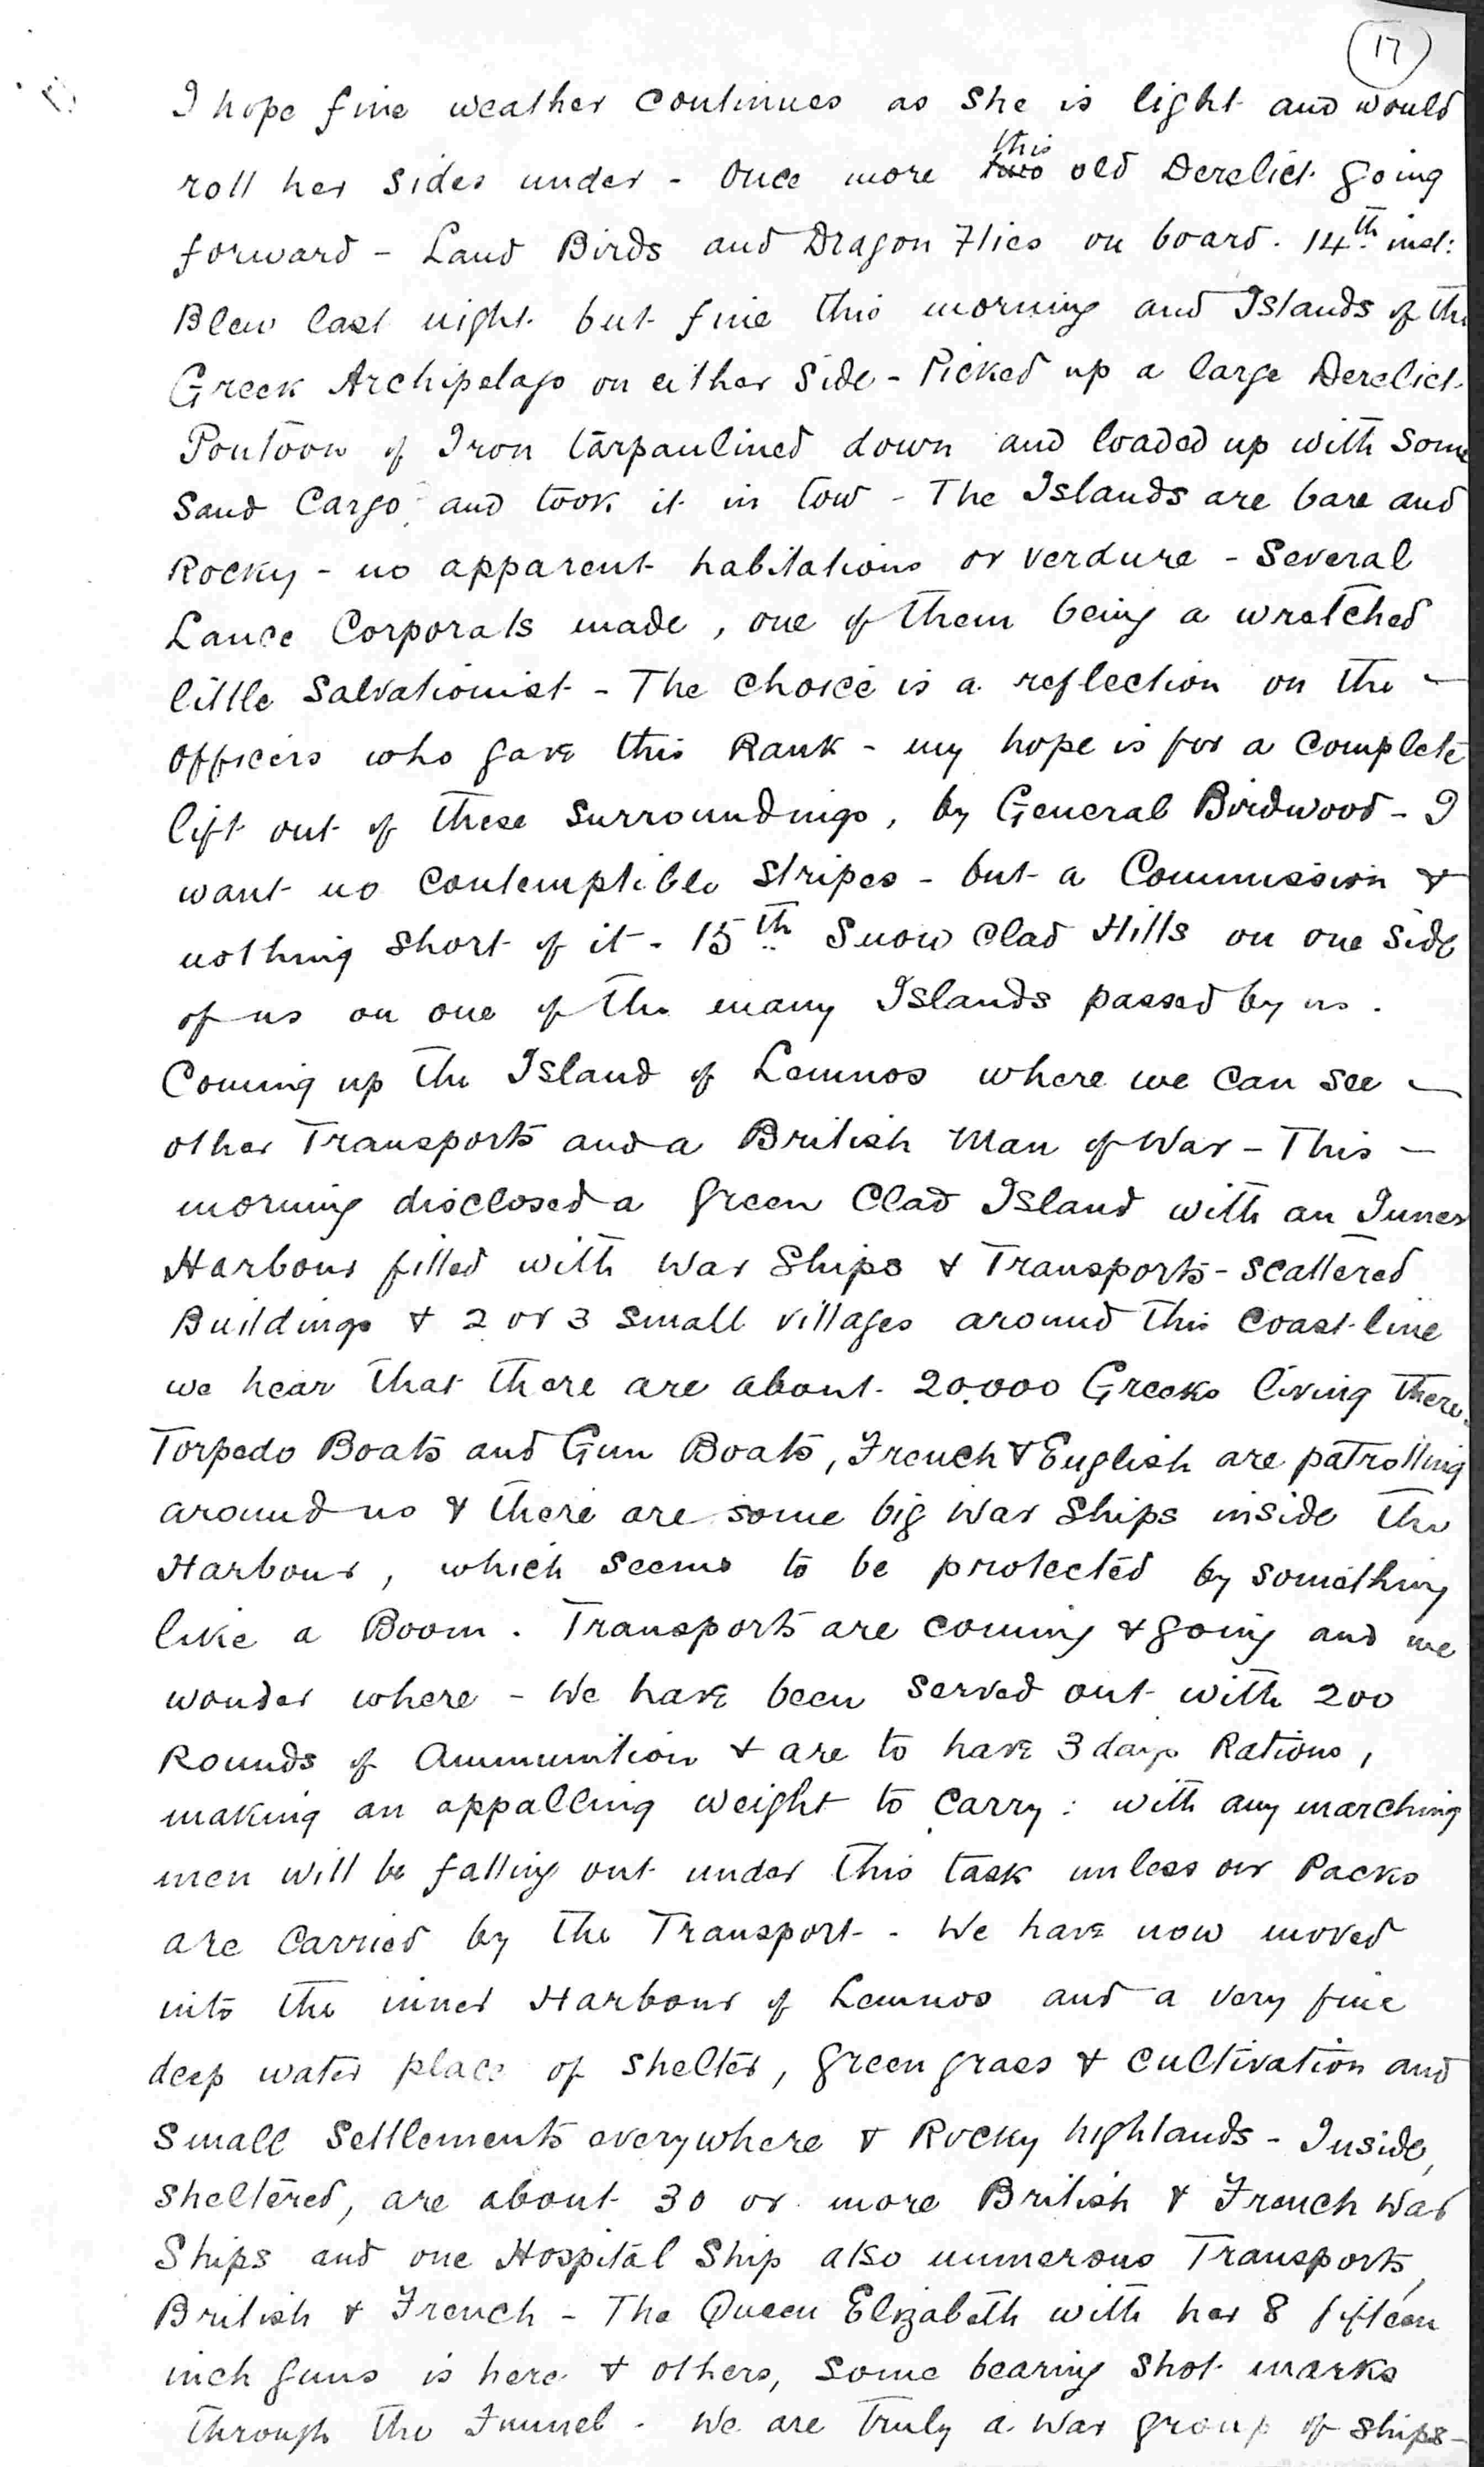 17
I hope fine weather continues as she is light and would
roll her sides under - Once more this old Derelict going
forward - Land Birds and Dragon Flies on board. 14th inst:
Blew last night but fine this morning and Islands of the
Greek Archipelago on either side - Picked up a large Derelict
Pontoon of Iron tarpaulined down and loaded up with some
Sand Cargo and took it in tow - The Islands are bare and
Rocky - no apparent habitations or verdure - Several
Lance Corporals made, one of them being a wretched
little Salvationist - The choice is a reflection on the -
Officers who gave this Rank - my hope is for a complete
lift out of these surroundings, by General Birdwood - I
want no contemptible stripes - but a Commission &
nothing short of it - 15th Snow Clad Hills on one side
of us on one of the many Islands passed by us.
Coming up the Island of Lemnos where we can see -
other Transports and a British Man of War - This -
morning disclosed a green Clad Island with an Inner
Harbour filled with War Ships & Transports - scattered
Buildings & 2 or 3 small villages around this Coast line
we hear that there are about 20,000 Greeks living there.
Torpedo Boats and Gun Boats, French & English are patrolling
around us & there are some big War Ships inside the
Harbour, which seems to be protected by something
like a Boom. Transports are coming & going and we
wonder where - We have been served out with 200
Rounds of Ammunition & are to have 3 days Rations,
making an appalling weight to carry: with any marching
men will be falling out under this task unless our Packs
are carried by the Transport - We have now moved
into the inner Harbour of Lemnos and a very fine
deep water place of shelter, green grass & cultivation and
Small Settlements everywhere & Rocky highlands - Inside,
sheltered, are about 30 or more British & French War
Ships and one Hospital Ship also numerous Transports,
British & French - The Queen Elizabeth with her 8 fifteen
inch guns is here & others, some bearing shot marks
through the Funnel. We are truly a War group of ships -